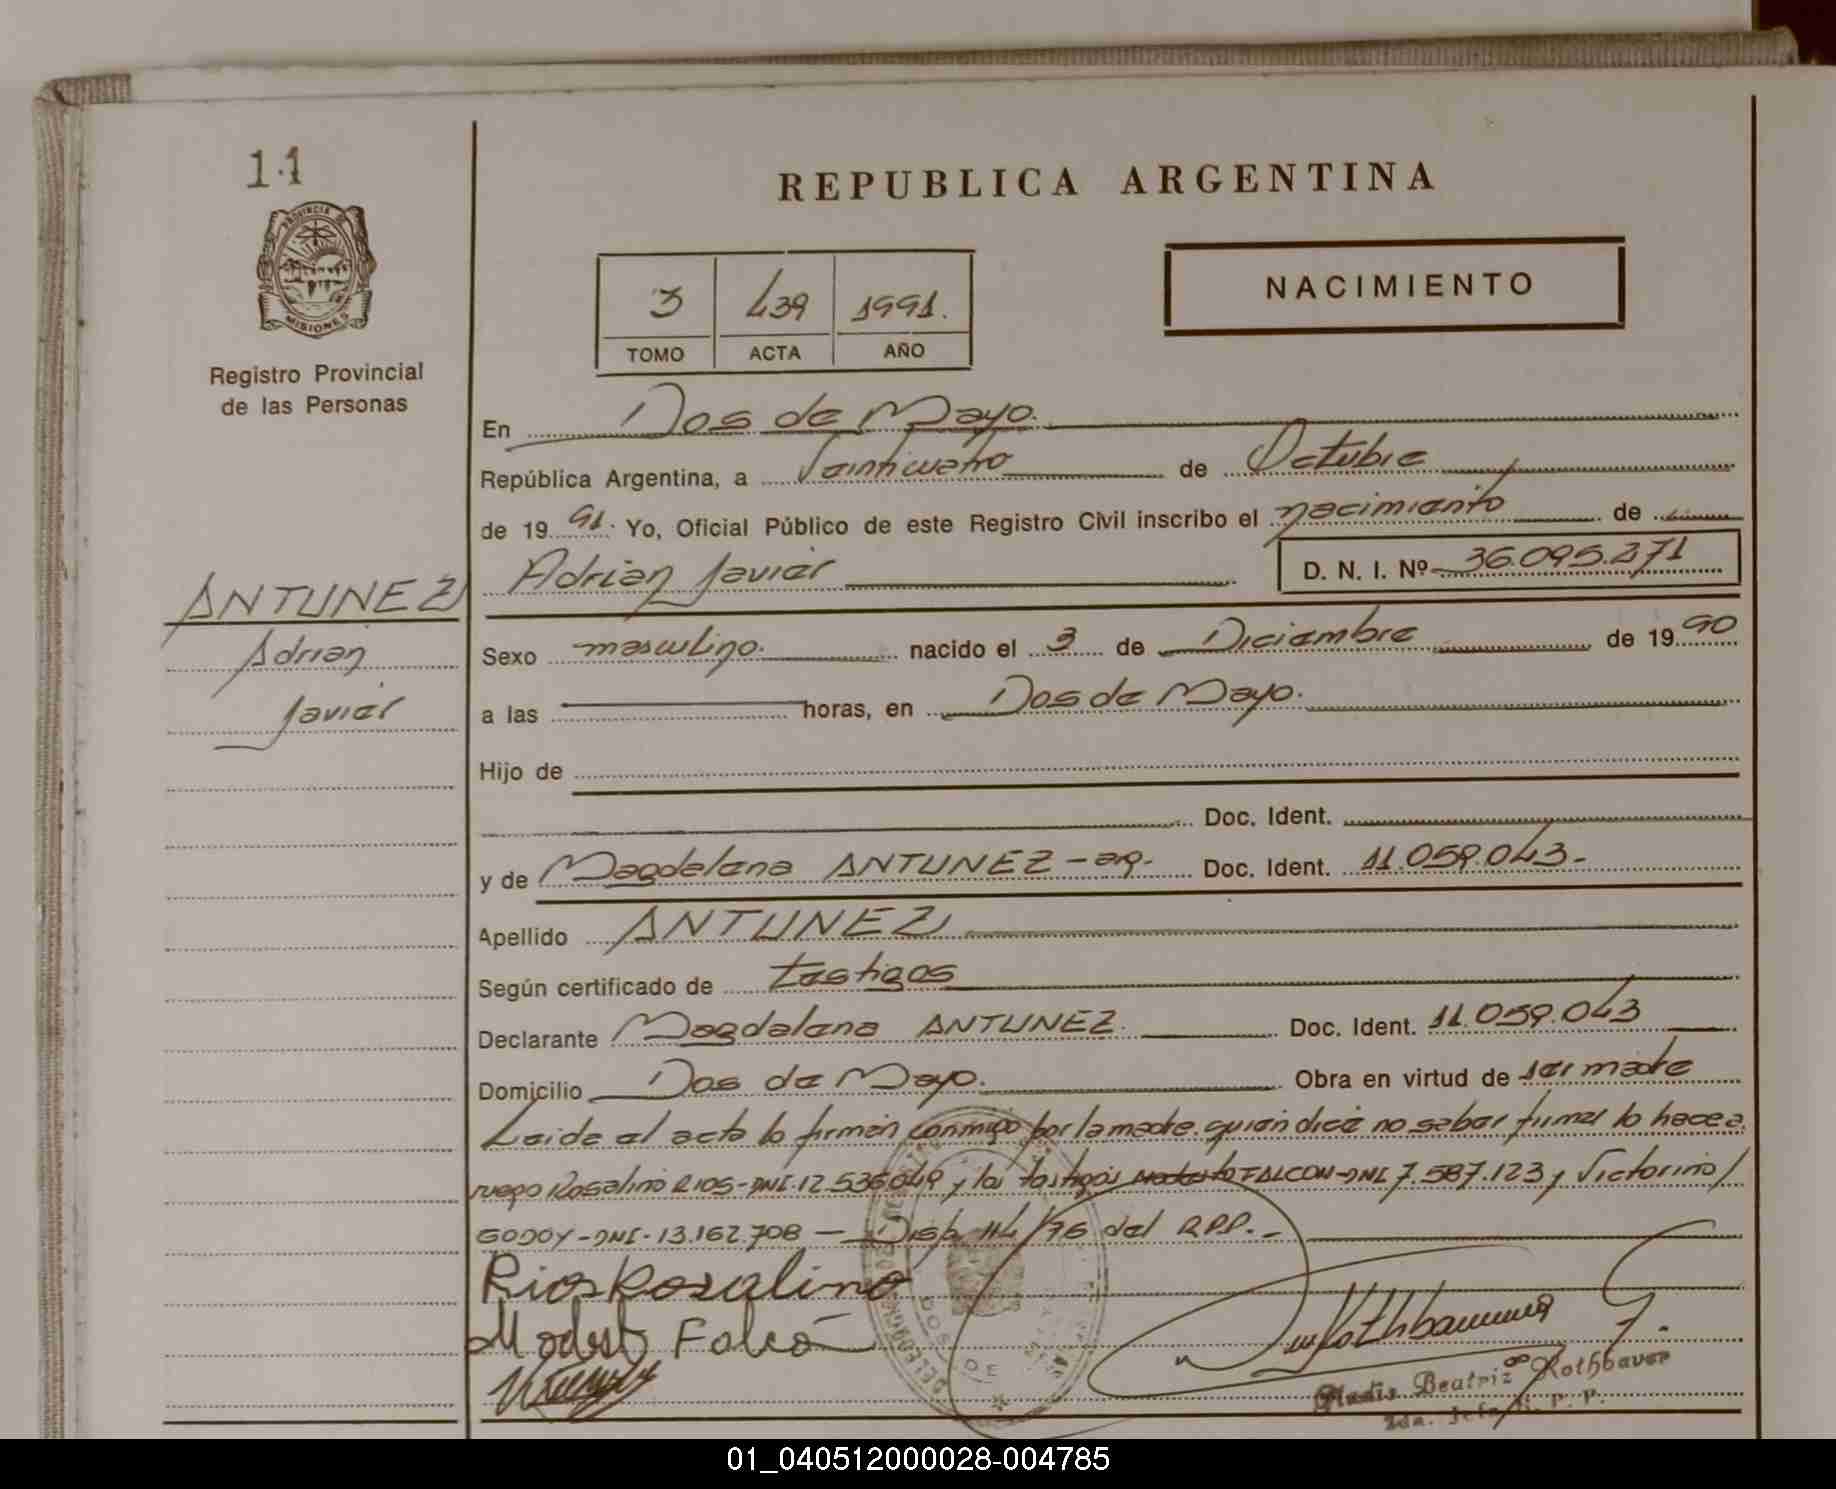 11
PROVINCIA DE
MISIONES
Registro Provincial
de las Personas
ANTUNEZ
Adrian
Javier
REPUBLICA ARGENTINA
3 439 1991.
TOMO ACTA AÑO
NACIMIENTO
En Dos de Mayo.
República Argentina, a Veinticuatro de Octubre
de 19 91. Yo, Oficial Público de este Registro Civil inscribo el nacimiento de
Adrian Javier D. N. I. Nº 36.095.271
Sexo masculino. nacido el 3 de Diciembre de 19 90
a las horas, en Dos de Mayo.
Hijo de
Doc. Ident.
y de Magdalena ANTUNEZ - arg. Doc. Ident. 11.059.043.-
Apellido ANTUNEZ
Según certificado de testigos
Declarante Magdalena ANTUNEZ. Doc. Ident. 11.059.043
Domicilio Dos de Mayo. Obra en virtud de ser madre
Leida el acta la firman conmigo por la madre quien dice no saber firmar lo hace a
ruego Rosalino RIOS - DNI. 12.536.049 y los testigos Modesto FALCON - DNI 7.587.123 y Victorino /
GODOY - DNI - 13.162.708 — Disp. 114/76 del RPP. -
Rios Rosalino
Modesto Falcó
Rothbauer
Gladis Beatriz Rothbauer
2da. Jefe R. P. P.
DOS DE
01_040512000028-004785